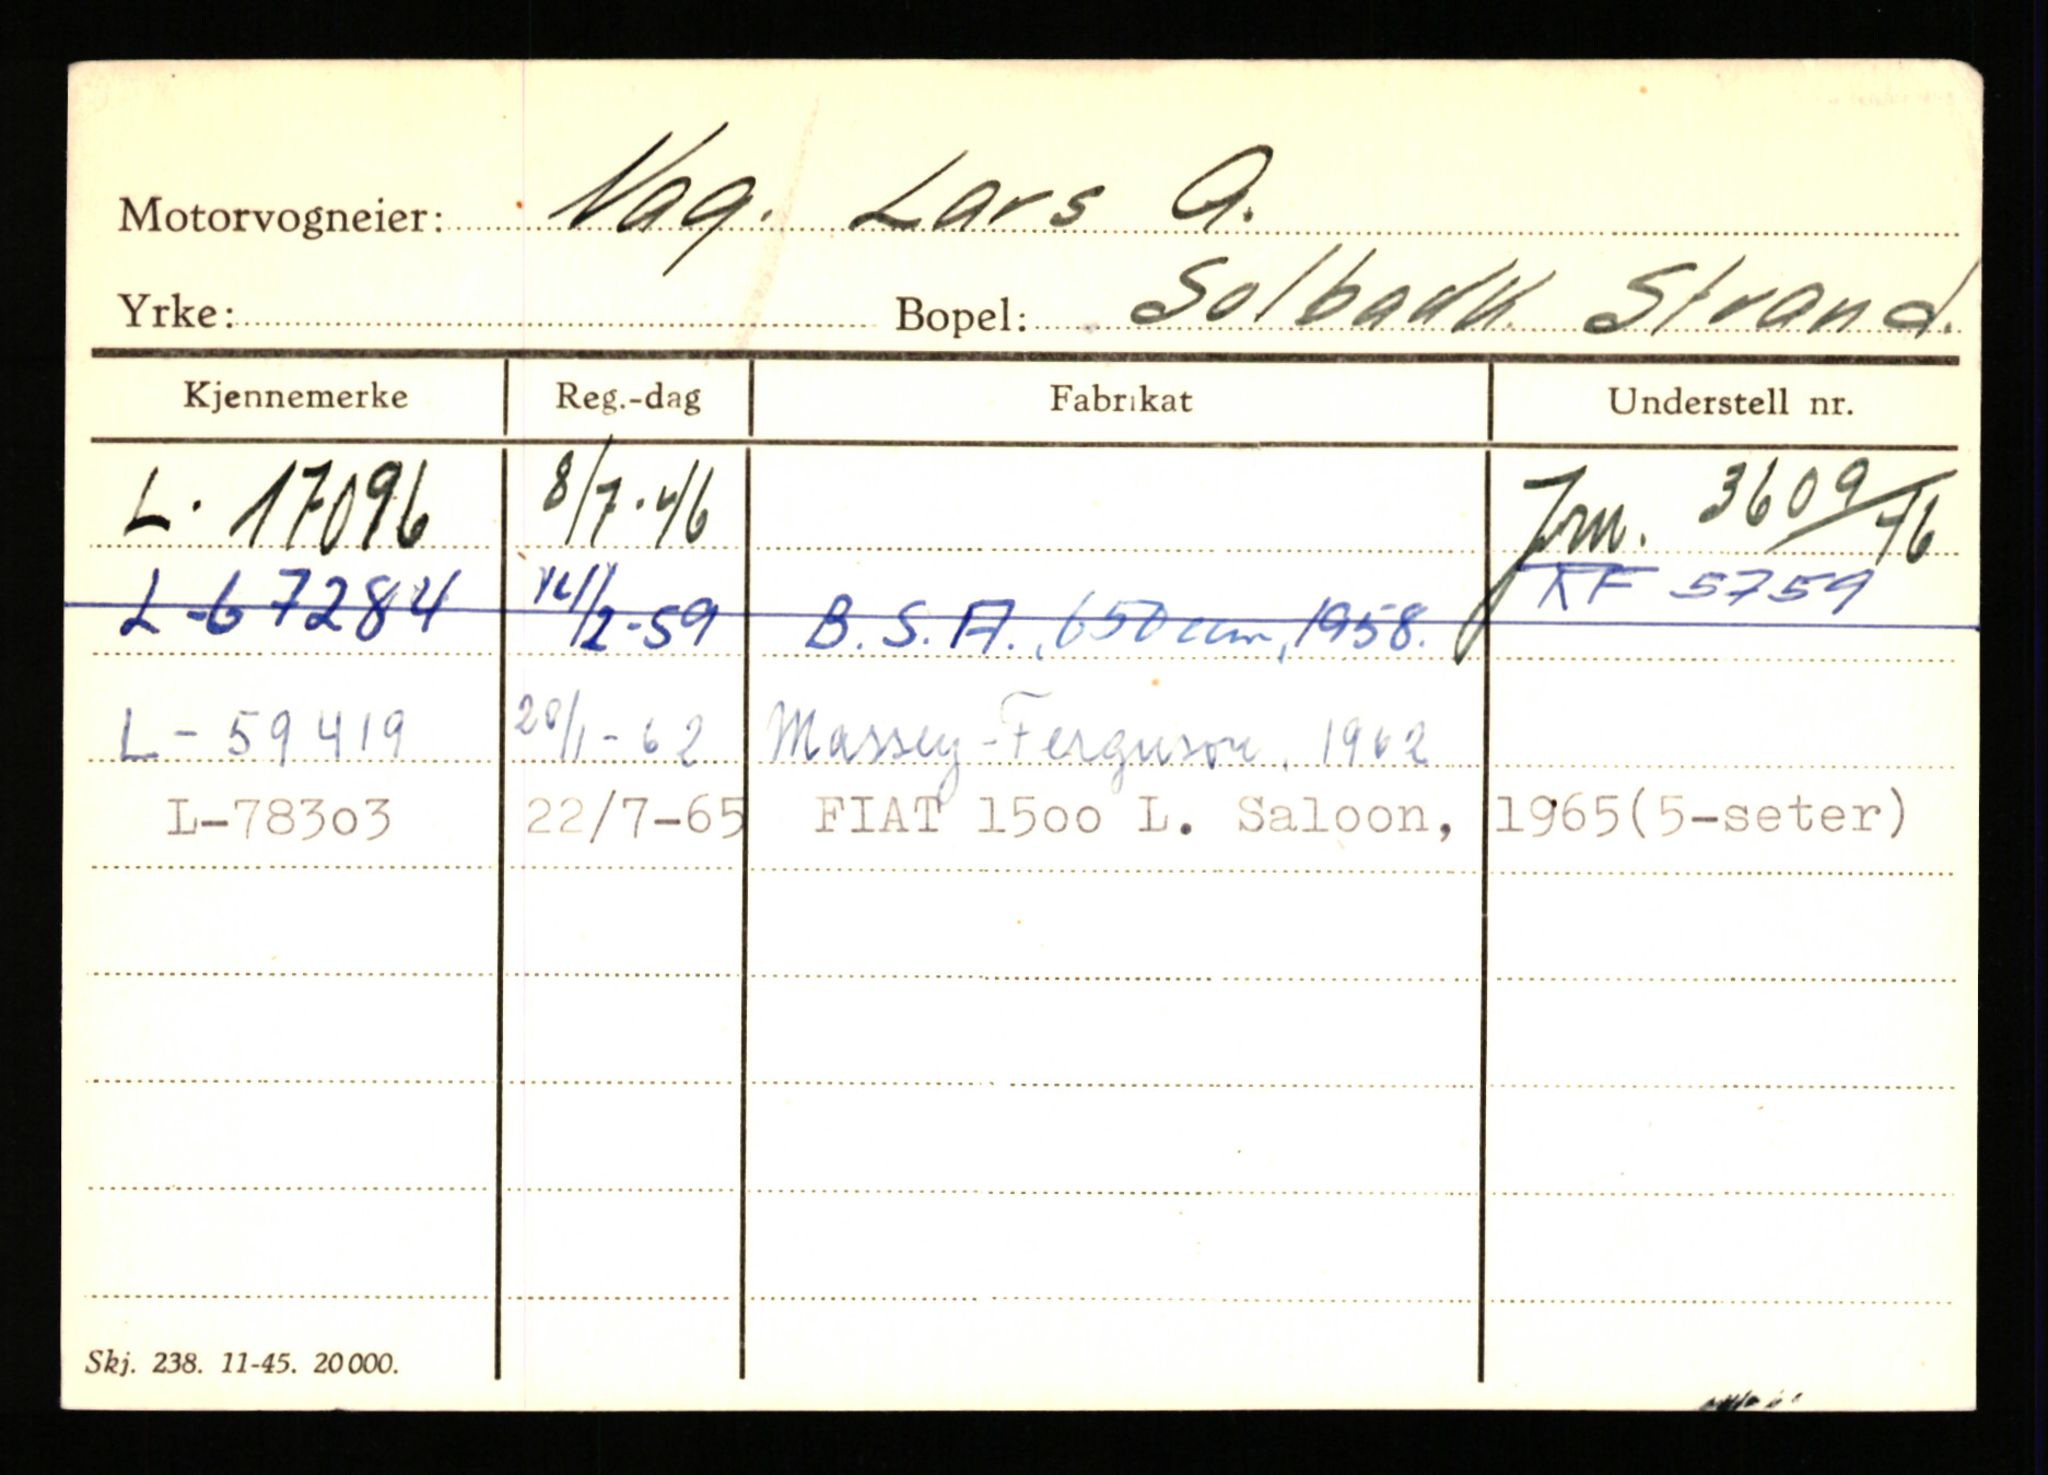 Motorvogneier: Vag. Lars A.
Yrke: Bopel: Solbakk Strand.
Kjennemerke Reg.-dag Fabrikat Understell nr.
L. 17096 8/7.46 Jrn. 3609/46
L-67284 14/2-59 B.S.A., 650 ccm, 1958. KF 5759
L-59419 20/1-62 Massey-Ferguson, 1962
L-78303 22/7-65 FIAT 1500 L. Saloon, 1965(5-seter)
Skj. 238. 11-45. 20000.